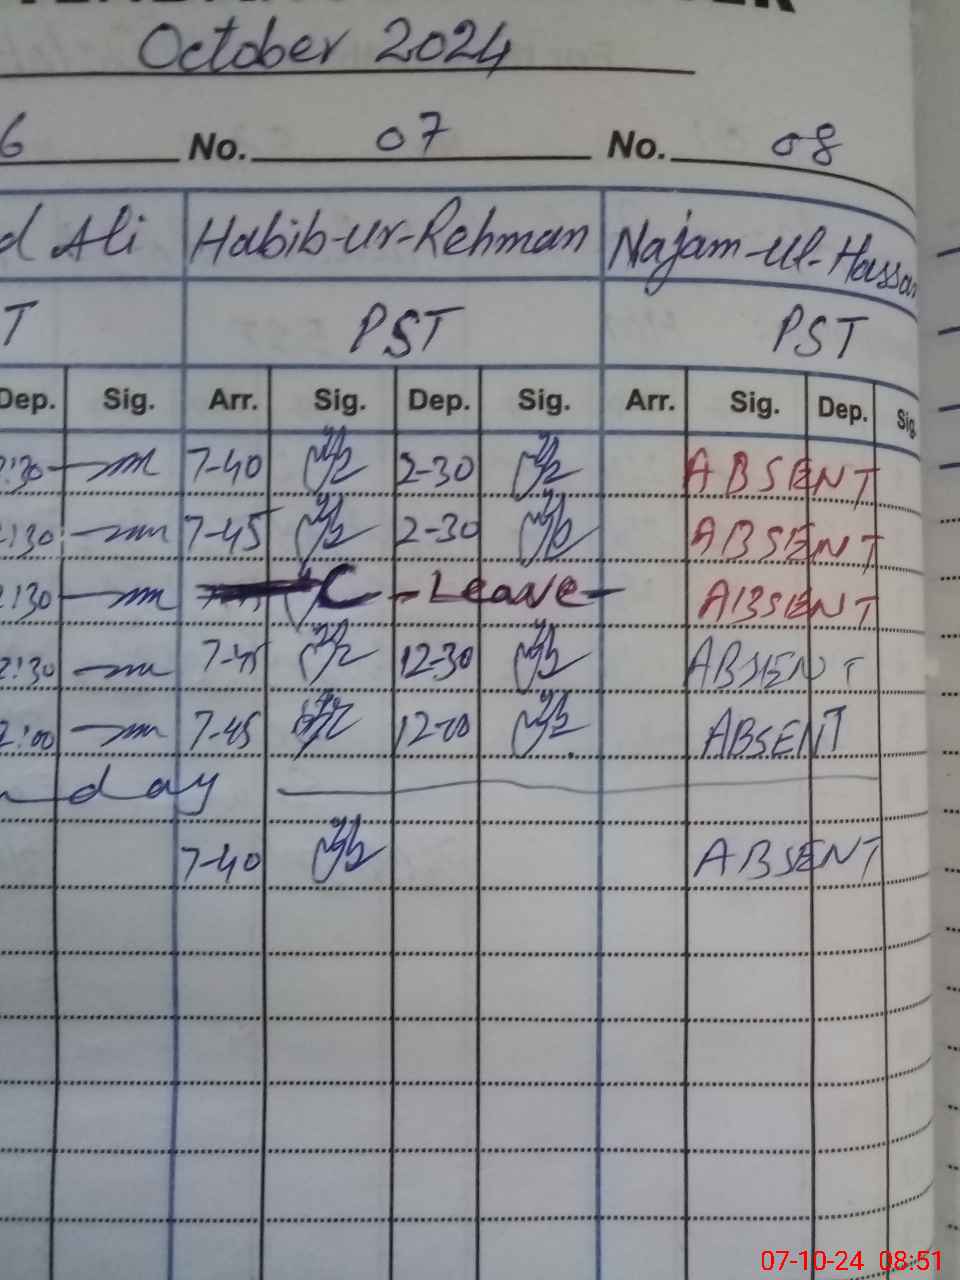 October 2024
6 No. 07 No. 08
d Ali Habib-ur-Rehman Najam-ul-Hassan
T PST PST
Dep. Sig. Arr. Sig. Dep. Sig. Arr. Sig. Dep. Sig.
2:30 7-40 2-30 ABSENT
2:30 7-45 2-30 ABSENT
2:30 C-Leave- ABSENT
2:30 7-45 12-30 ABSENT
2:00 7-45 12-00 ABSENT
n day
7-40 ABSENT
07-10-24 08:51